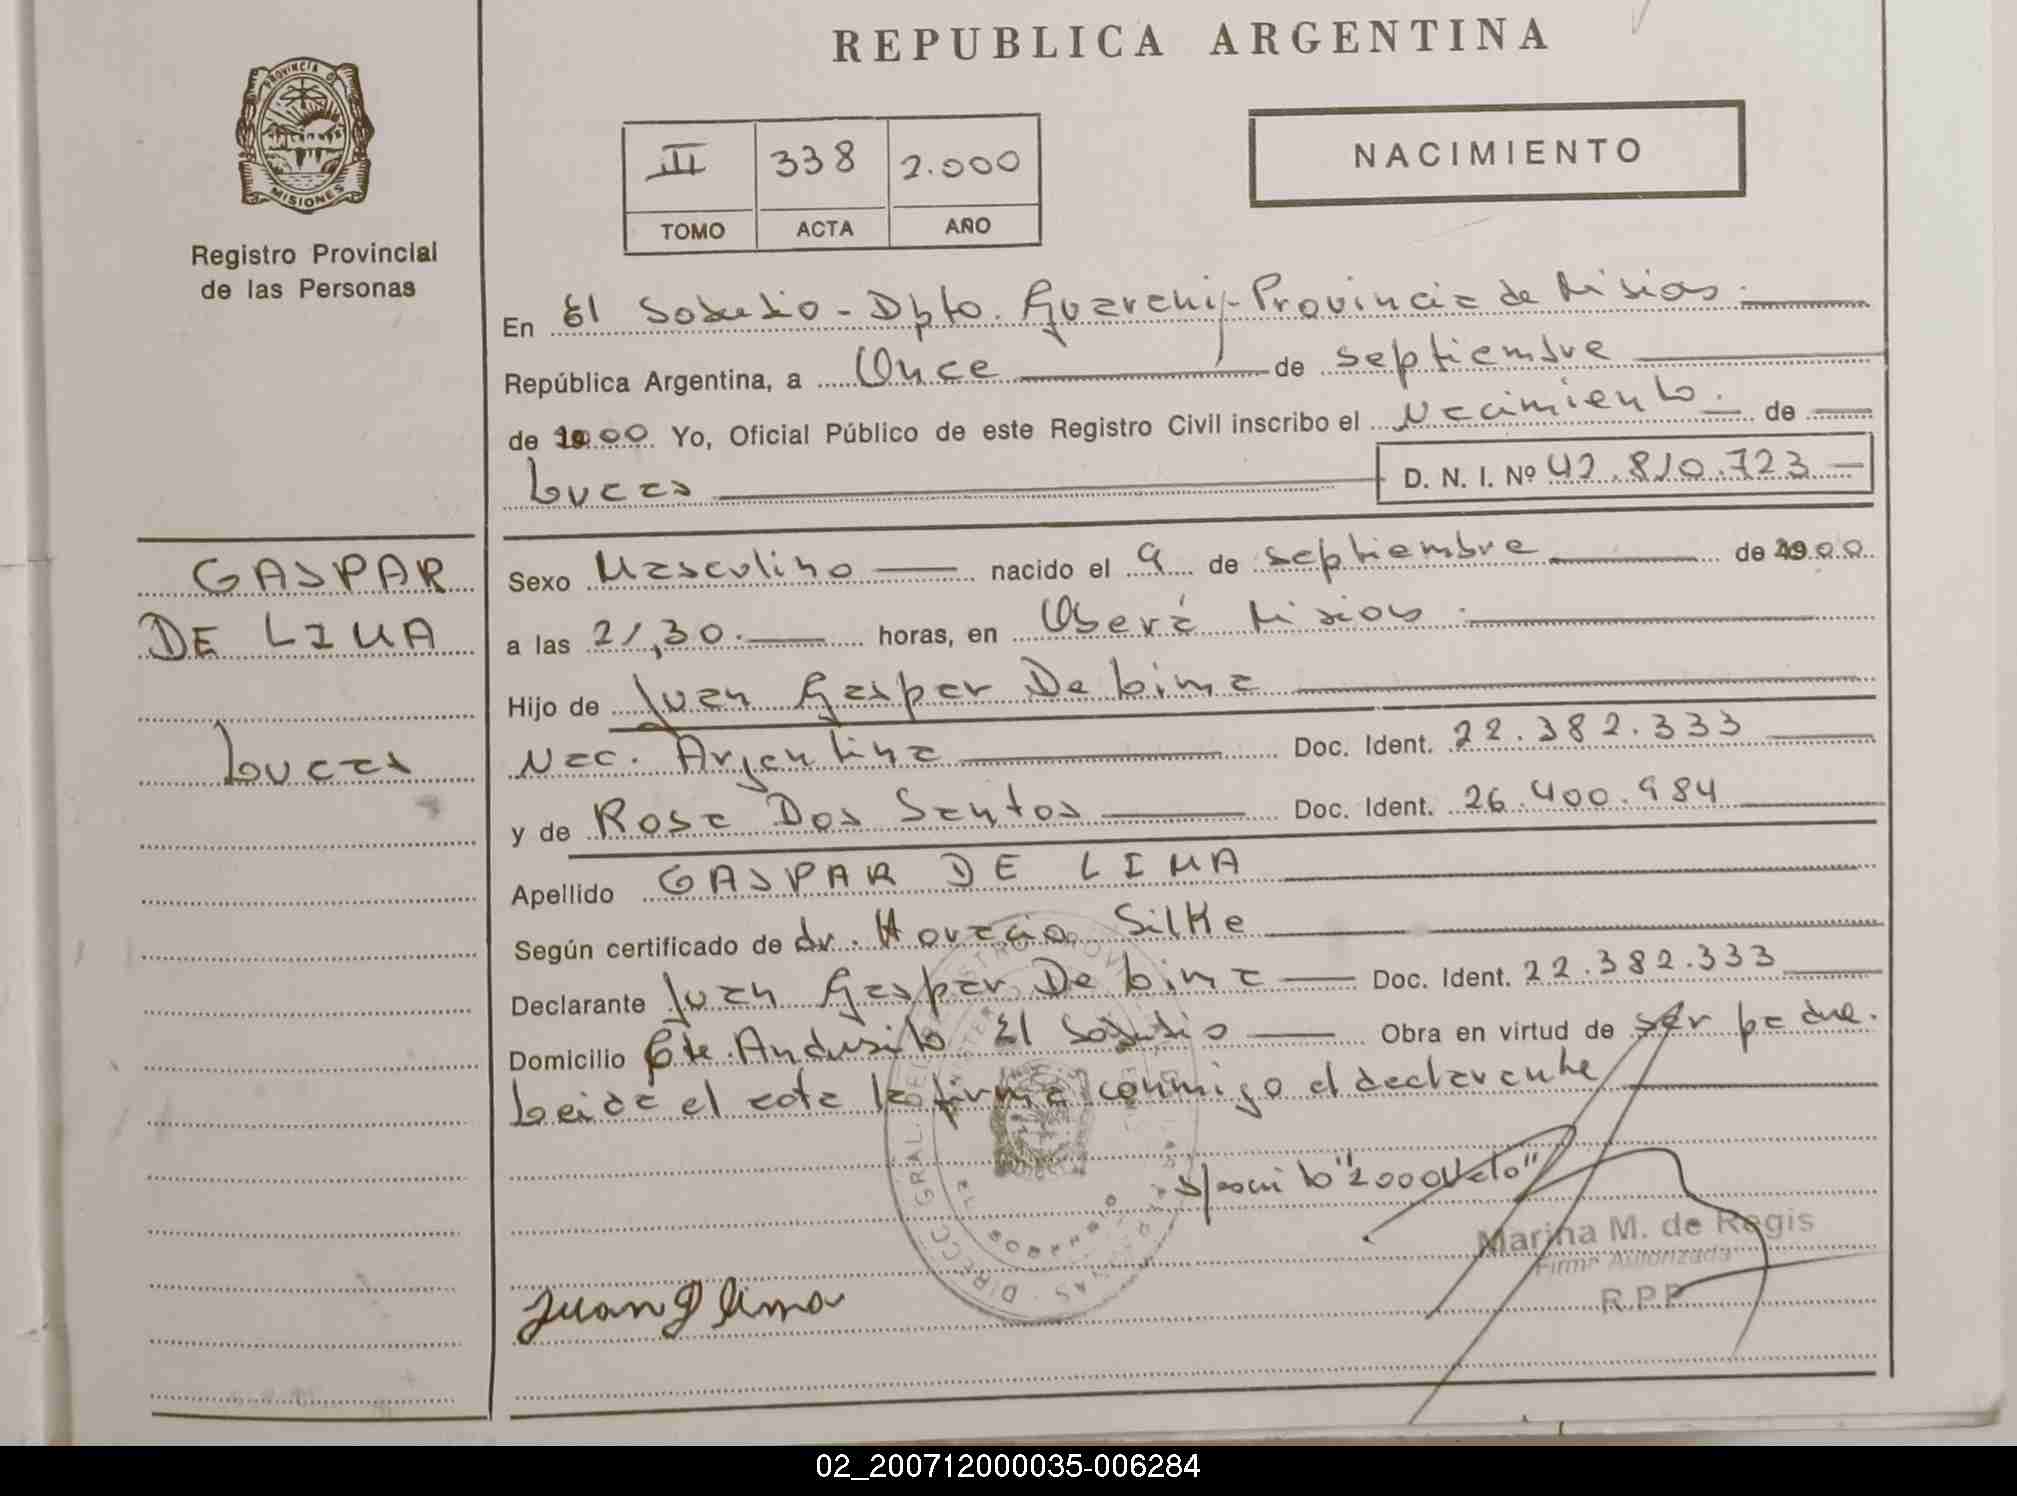 REPUBLICA ARGENTINA
PROVINCIA D MISIONES
Registro Provincial
de las Personas
III 338 2.000
TOMO ACTA AÑO
NACIMIENTO
En El Soberbio - Dpto. Guarani - Provincia de Misios.
República Argentina, a Once de septiembre
de 00 Yo, Oficial Público de este Registro Civil inscribo el Nacimiento. de
Lucas D. N. I. Nº 42.810.723
GASPAR
DE LIMA
Lucas
Sexo Masculino nacido el 9 de septiembre de 00
a las 21,30. horas, en Oberá Misios.
Hijo de Juan Gaspar De Lima
Nac. Argentina Doc. Ident. 22.382.333
y de Rosa Dos Santos Doc. Ident. 26.400.984
Apellido GASPAR DE LIMA
Según certificado de dr. Horacio Silke
Declarante Juan Gaspar De Lima Doc. Ident. 22.382.333
Domicilio El Soberbio Obra en virtud de ser padre.
Leida el acta la firma conmigo el declarante
"2000 Vale"
Marina M. de Regis
Firma Autorizada
R.P.P.
Juan G Lima
02_200712000035-006284